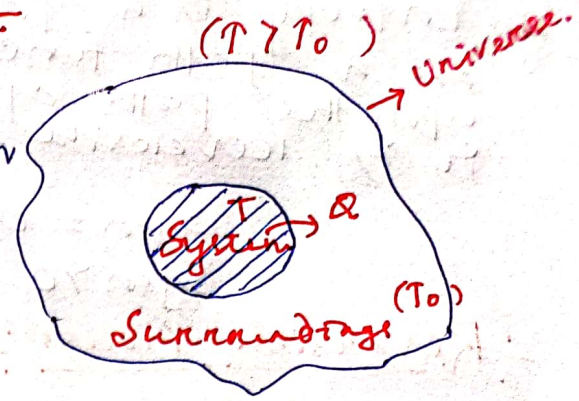 (T > T₀)
Universe.
T
System
Q
(T₀)
Surroundings